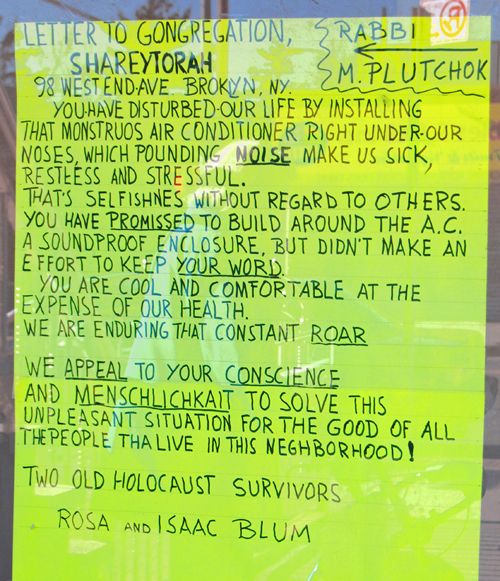 LETTER TO GONGREGATION,
SHAREYTORAH
RABBI
M. PLUTCHOK
98 WEST END AVE. BROKLYN, NY.
YOU-HAVE DISTURBED-OUR LIFE BY INSTALLING
THAT MONSTRUOS AIR CONDITIONER RIGHT UNDER-OUR
NOSES, WHICH POUNDING NOISE MAKE US SICK,
RESTLESS AND STRESSFUL.
THAT'S SELFISHNES WITHOUT REGARD TO OTHERS.
YOU HAVE PROMISSED TO BUILD AROUND THE A.C.
A SOUNDPROOF ENCLOSURE, BUT DIDN'T MAKE AN
EFFORT TO KEEP YOUR WORD.
YOU ARE COOL AND COMFORTABLE AT THE
EXPENSE OF OUR HEALTH.
WE ARE ENDURING THAT CONSTANT ROAR
WE APPEAL TO YOUR CONSCIENCE
AND MENSCHLICHKAIT TO SOLVE THIS
UNPLEASANT SITUATION FOR THE GOOD OF ALL
THEPEOPLE THALIVE IN THIS NEGHBORHOOD!
TWO OLD HOLOCAUST SURVIVORS
ROSA AND ISAAC BLUM